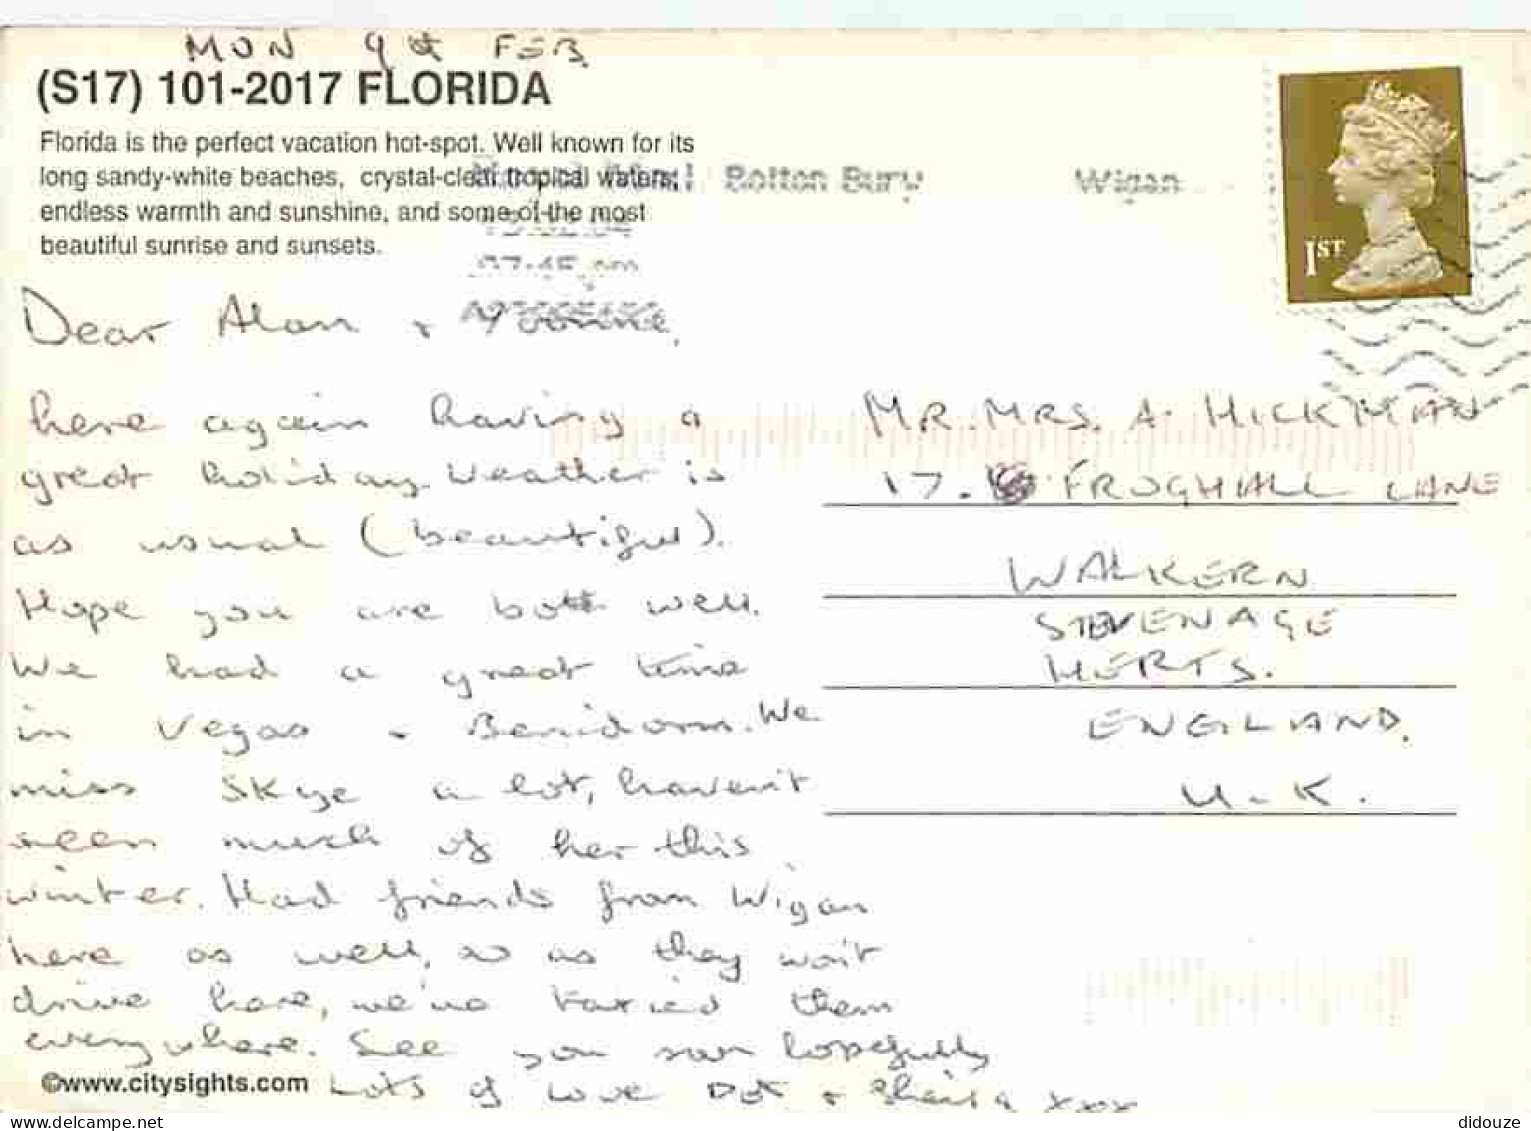 MON 9th FEB
(S17) 101-2017 FLORIDA
Florida is the perfect vacation hot-spot. Well known for its
long sandy-white beaches, crystal-clear, tropical waters,
endless warmth and sunshine, and some of the most
beautiful sunrise and sunsets.
Royal Mail Bolton Bury Wigan
13.02.04
07:45 pm
1ST
Dear Alan + Yvonne,
here again having a
great holiday weather is
as usual (beautiful).
Hope you are both well.
We had a great time
in Vegas + Benidorm. We
miss Skye a lot, haven't
seen much of her this
winter. Had friends from Wigan
here as well, so as they won't
drive here, we've taxied them
everywhere. See you soon hopefully
Lots of love Dot + Sheila xxx
MR. MRS. A. HICKMAN
17. FROGHALL LANE
WALKERN
STEVENAGE
HERTS.
ENGLAND.
U.K.
©www.citysights.com
didouze